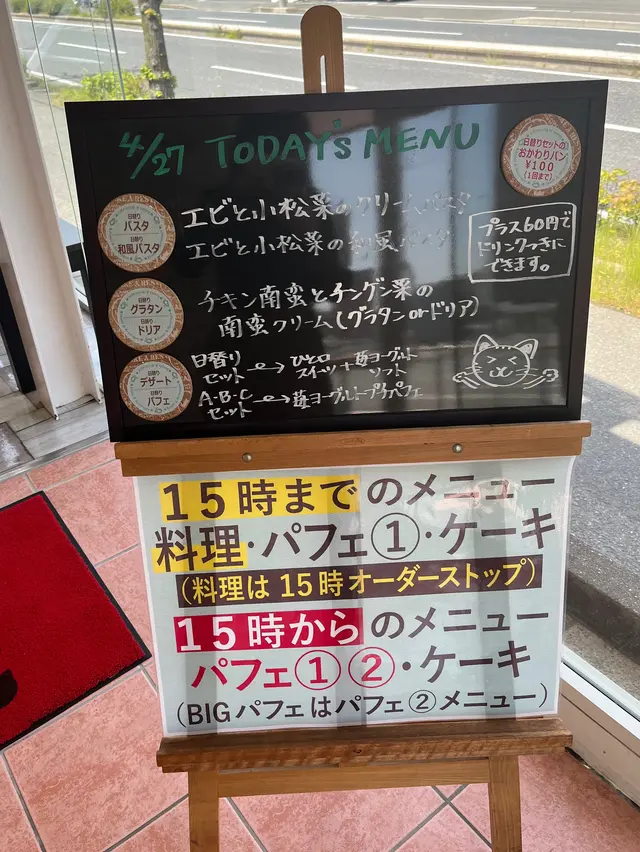 4/27 TODAY'S MENU
日替りセットの
おかわりパン
¥100
(1回まで)
日替り
パスタ
日替り
和風パスタ
エビと小松菜のクリームパスタ
エビと小松菜の和風パスタ
プラス60円で
ドリンクつきに
できます。
日替り
グラタン
日替り
ドリア
チキン南蛮とチンゲン菜の
南蛮クリーム(グラタンorドリア)
日替り
デザート
日替り
パフェ
日替り
セット
ひと口
スイーツ
+
苺ヨーグルト
ソフト
A・B・C
セット
苺ヨーグルトプチパフェ
15時までのメニュー
料理・パフェ①・ケーキ
(料理は15時オーダーストップ)
15時からのメニュー
パフェ①②・ケーキ
(BIGパフェはパフェ②メニュー)